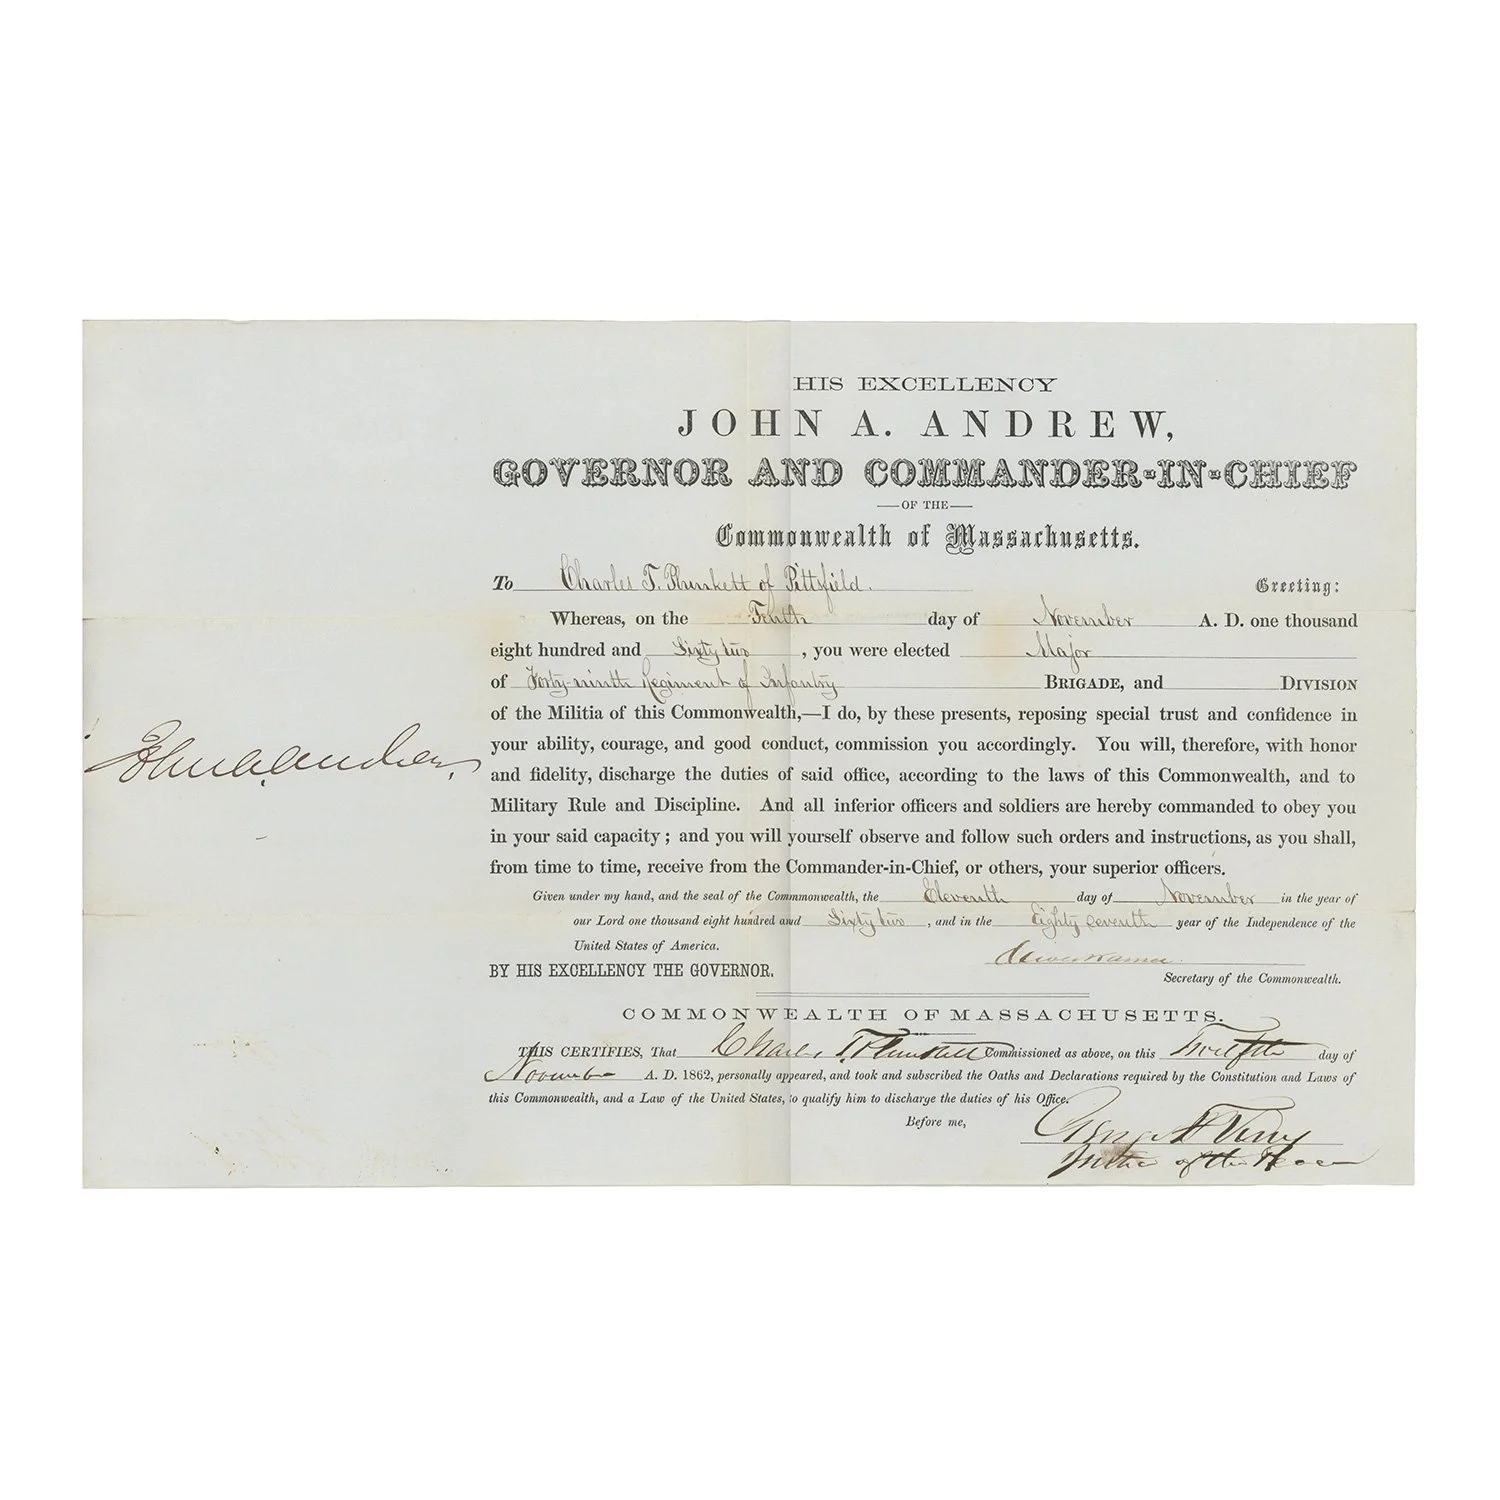 HIS EXCELLENCY
JOHN A. ANDREW,
GOVERNOR AND COMMANDER-IN-CHIEF
—OF THE—
Commonwealth of Massachusetts.
To Charles T. Plunkett of Pittsfield. Greeting:
Whereas, on the Tenth day of November A. D. one thousand
eight hundred and Sixty two, you were elected Major
of Forty-ninth Regiment of Infantry BRIGADE, and DIVISION
of the Militia of this Commonwealth,—I do, by these presents, reposing special trust and confidence in
your ability, courage, and good conduct, commission you accordingly. You will, therefore, with honor
and fidelity, discharge the duties of said office, according to the laws of this Commonwealth, and to
Military Rule and Discipline. And all inferior officers and soldiers are hereby commanded to obey you
in your said capacity; and you will yourself observe and follow such orders and instructions, as you shall,
from time to time, receive from the Commander-in-Chief, or others, your superior officers.
John A. Andrew.
Given under my hand, and the seal of the Commonwealth, the Eleventh day of November in the year of
our Lord one thousand eight hundred and Sixty two, and in the Eighty seventh year of the Independence of the
United States of America.
BY HIS EXCELLENCY THE GOVERNOR.
Oliver Warner.
Secretary of the Commonwealth.
COMMONWEALTH OF MASSACHUSETTS.
THIS CERTIFIES, That Charles T. Plunkett Commissioned as above, on this Twelfth day of
November A. D. 1862, personally appeared, and took and subscribed the Oaths and Declarations required by the Constitution and Laws of
this Commonwealth, and a Law of the United States, to qualify him to discharge the duties of his Office.
Before me,
George
Justice of the Peace